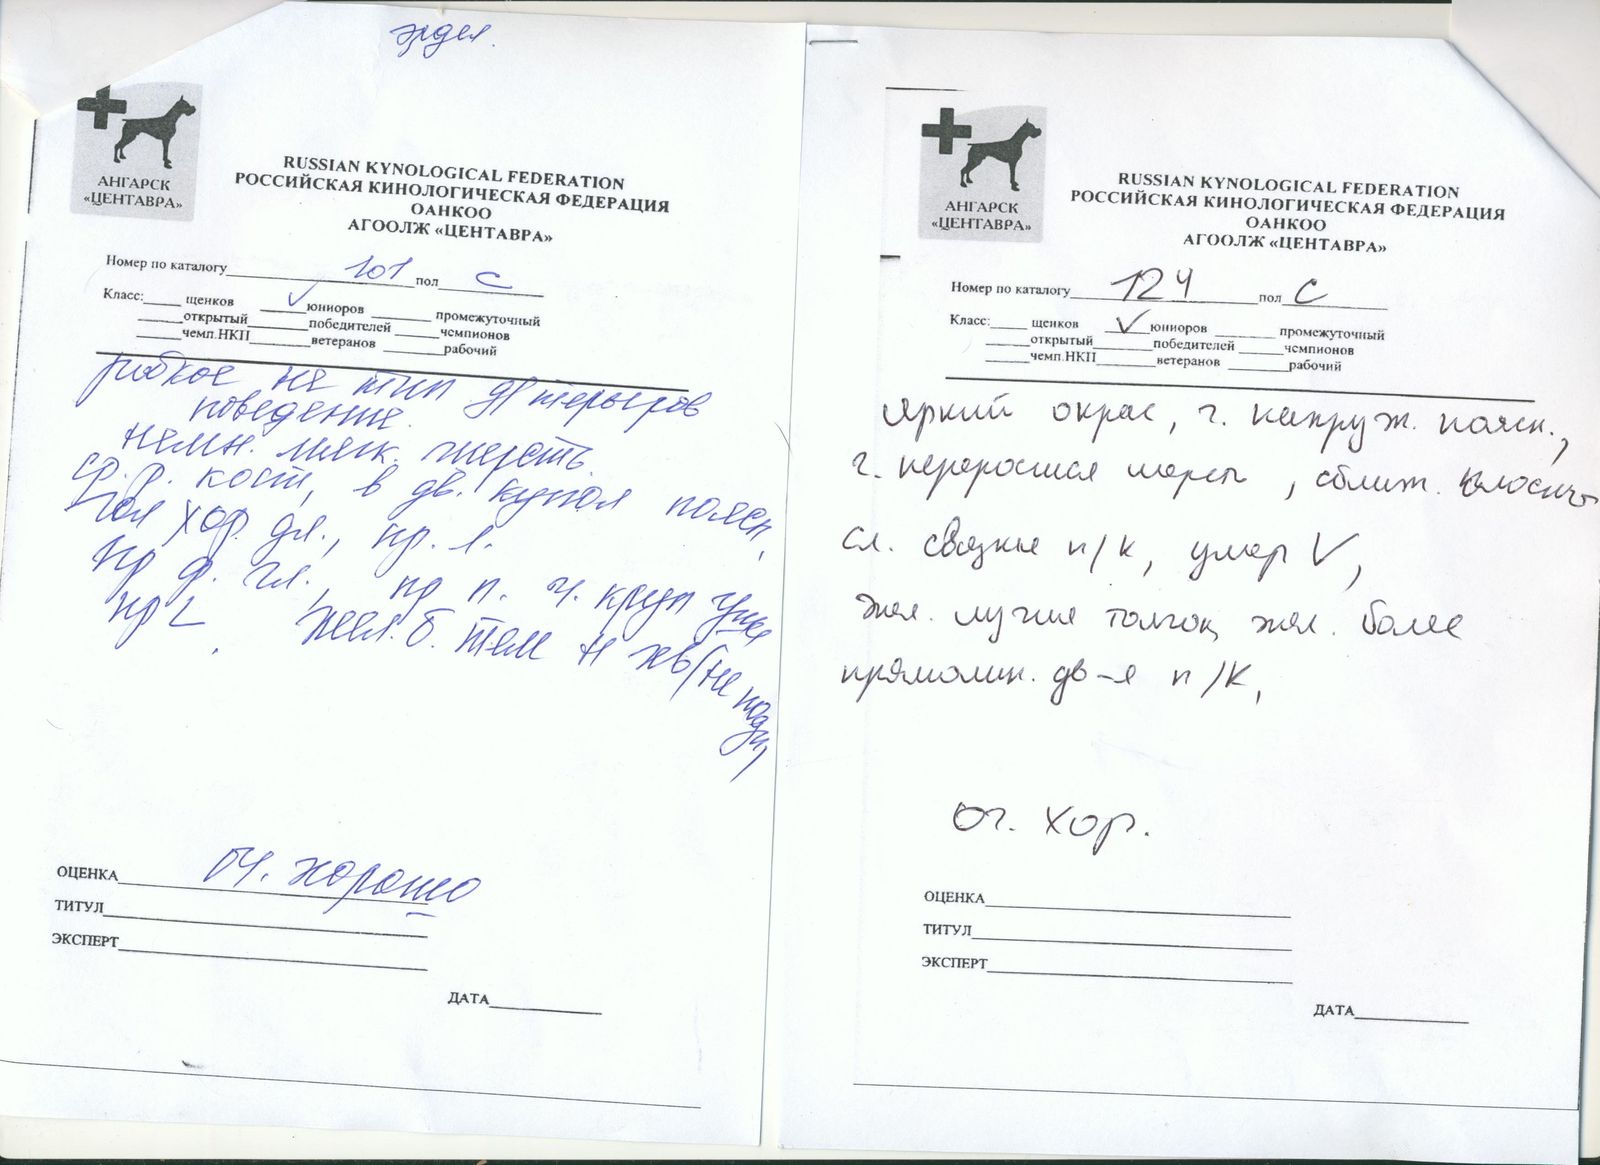 эрдел.
АНГАРСК
«ЦЕНТАВРА»
RUSSIAN KYNOLOGICAL FEDERATION
РОССИЙСКАЯ КИНОЛОГИЧЕСКАЯ ФЕДЕРАЦИЯ
ОАНКОО
АГООЛЖ «ЦЕНТАВРА»
Номер по каталогу 101 пол С
Класс:_____ щенков ✓ юниоров ________ промежуточный
______открытый________победителей ______чемпионов
______чемп.НКП________ветеранов ________рабочий
робкое не тип д/терьеров
поведение.
немн. мягк. шерсть.
ср. р. кост, в дв. купол поясн,
гол хор дл., пр. л.
пр ф. гл., пр п. ч. круп уже
пр L жел. б. тем н хв(не
ОЦЕНКА оч. хорошо
ТИТУЛ
ЭКСПЕРТ
ДАТА
АНГАРСК
«ЦЕНТАВРА»
RUSSIAN KYNOLOGICAL FEDERATION
РОССИЙСКАЯ КИНОЛОГИЧЕСКАЯ ФЕДЕРАЦИЯ
ОАНКОО
АГООЛЖ «ЦЕНТАВРА»
Номер по каталогу 124 пол С
Класс:_____ щенков ✓ юниоров ________ промежуточный
______открытый________победителей ______чемпионов
______чемп.НКП________ветеранов ________рабочий
яркий окрас, ч. напруж. поясн.,
ч. переросшая шерсть, сближ.
сл. связки п/к, умер V,
жел. лучше толчок, жел. более
прямолин. дв-я п/к,
оч. хор.
ОЦЕНКА
ТИТУЛ
ЭКСПЕРТ
ДАТА